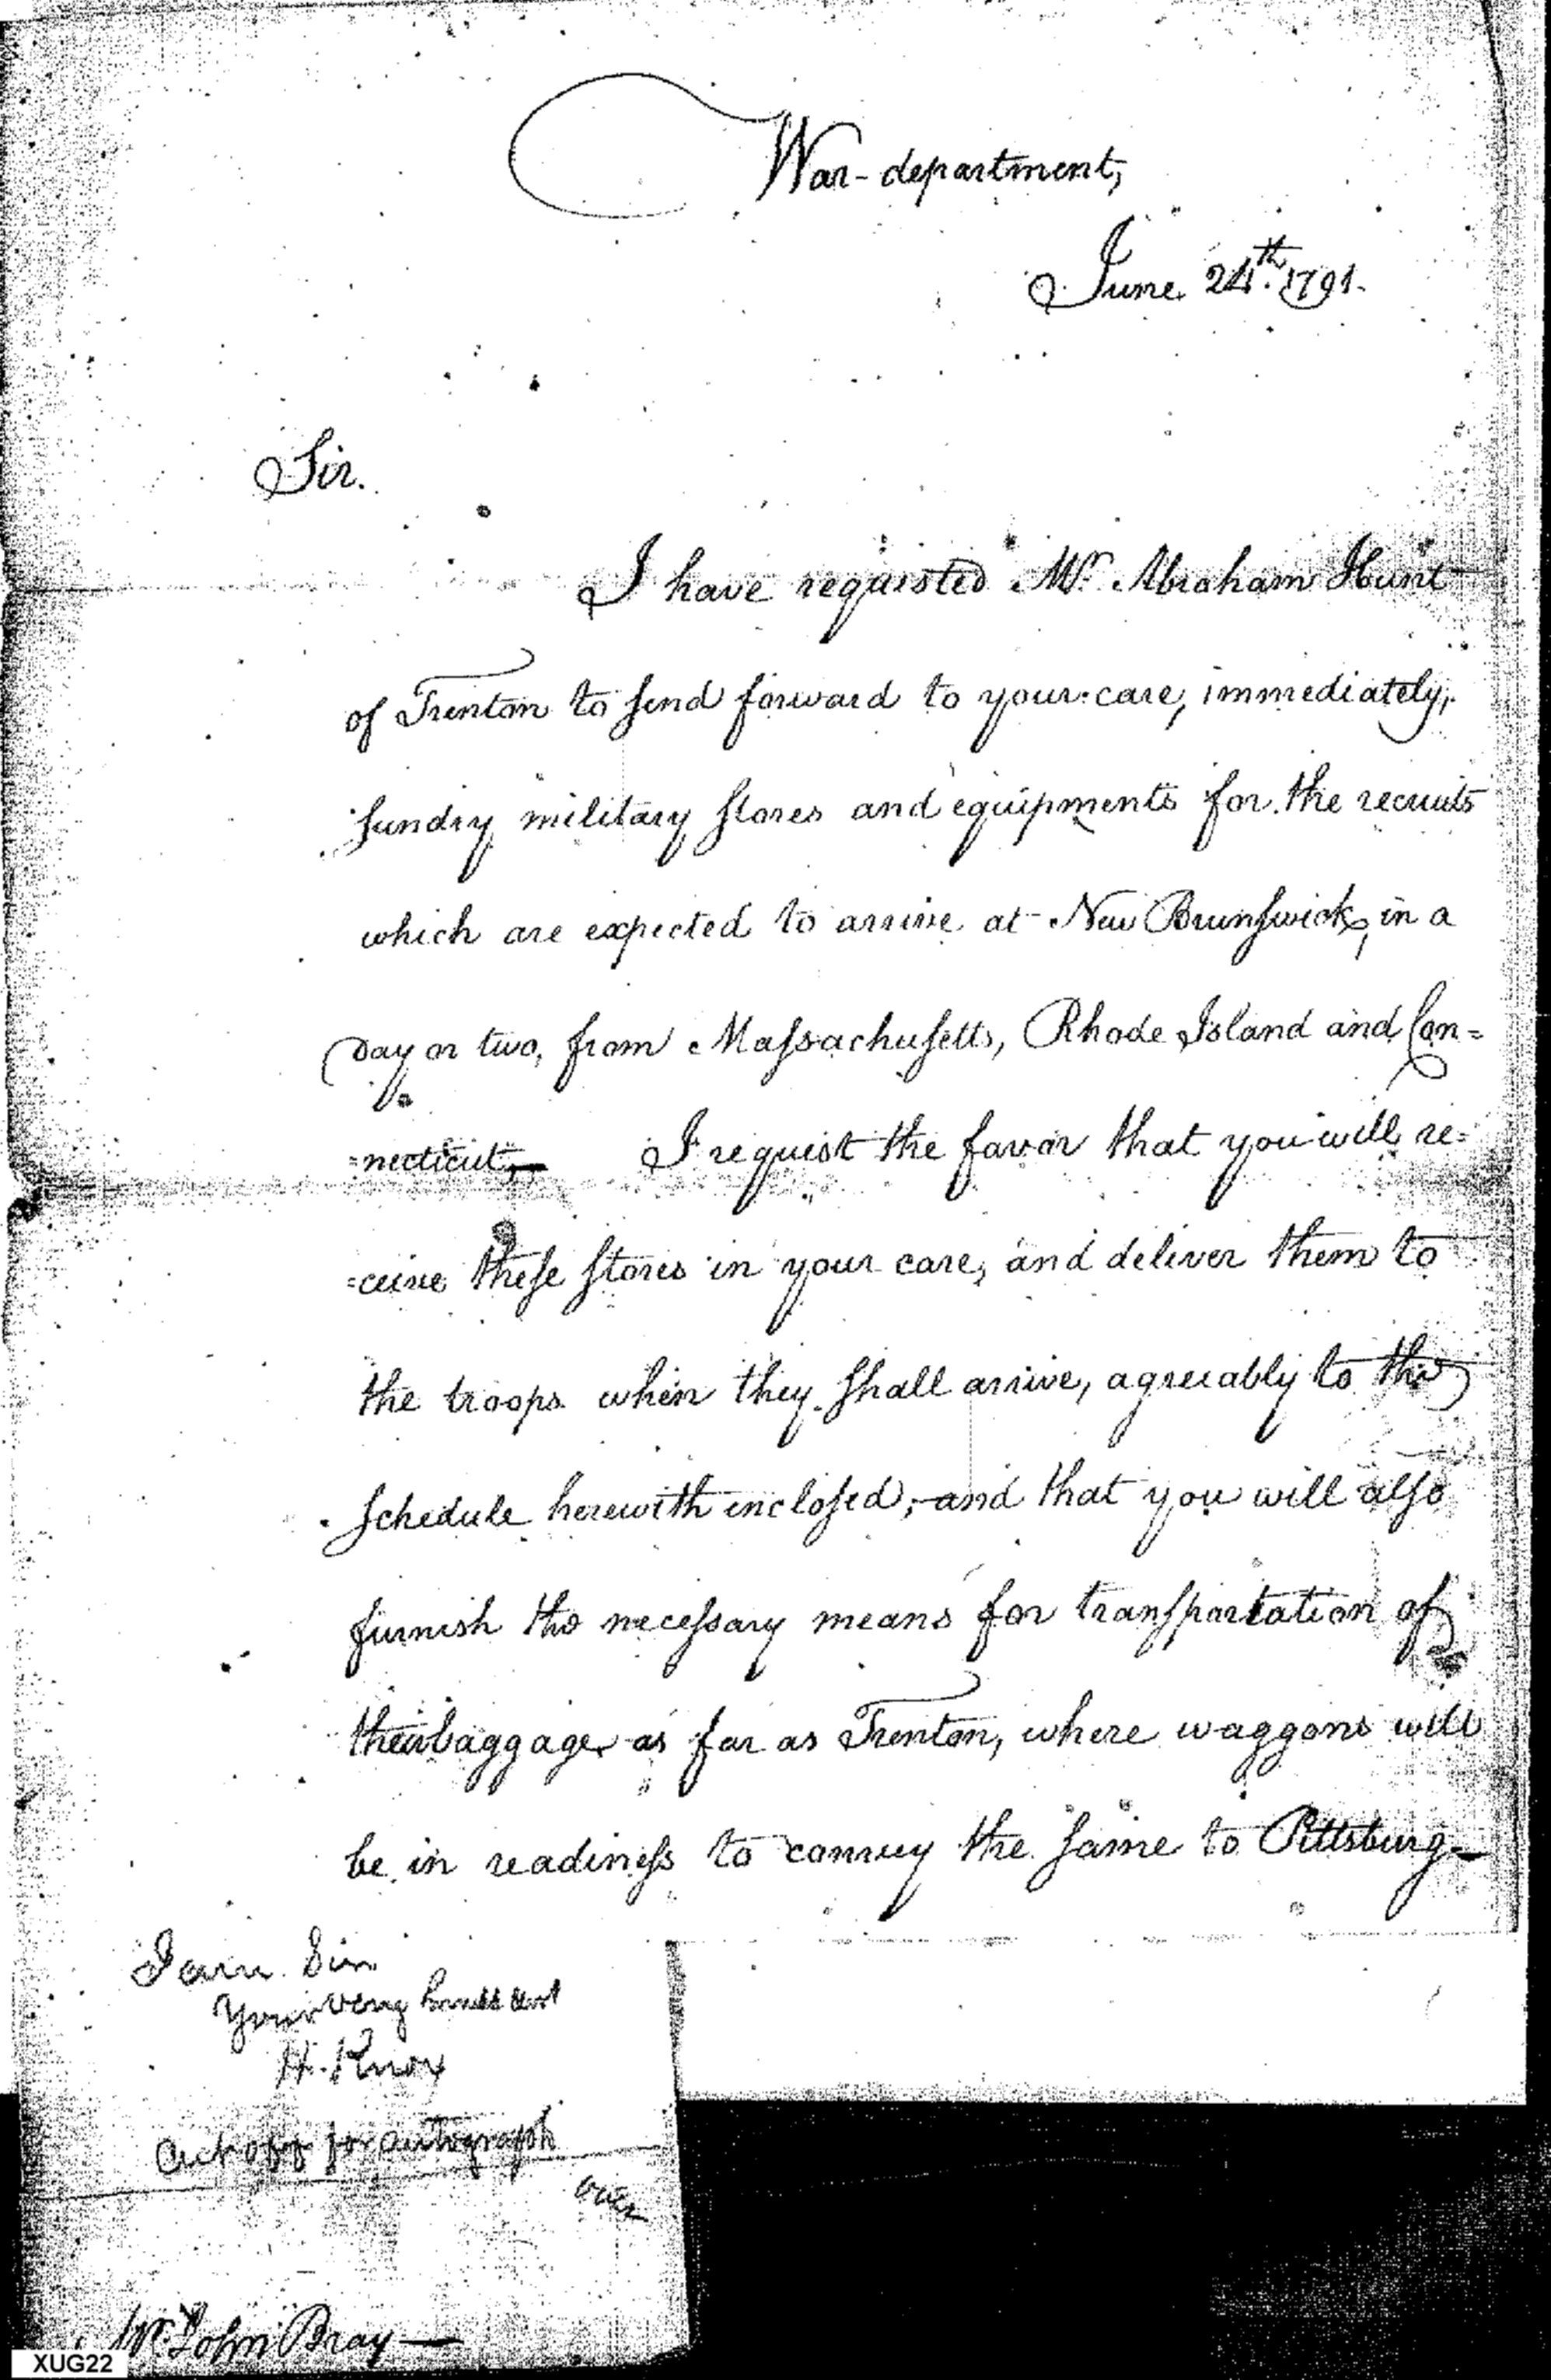 War-department,
June 24th. 1791.
Sir.
I have requested Mr. Abraham Hunt
of Trenton to send forward to your care, immediately,
sundry military stores and equipments for the recruits
which are expected to arrive at New Brunswick, in a
day or two, from Massachusetts, Rhode Island and Con=
=necticut,— I request the favor that you will re=
=ceive these stores in your care, and deliver them to
the troops when they shall arrive, agreeably to the
schedule herewith inclosed; and that you will also
furnish the necessary means for transportation of
their baggage as far as Trenton, where waggons will
be in readiness to convey the same to Pittsburg—
I am Sir
Your very
H. Knox
Cut off for autograph
over
Mr. John Bray—
XUG22